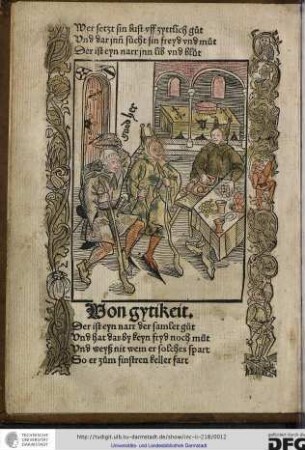 Wer setzt sin lust vff zyttlich gůt
Vnd dar jnn sůcht sin freyd vnd můt
Der ist eyn narr jnn lib vnd blůt
gnad her
Von gytikeit.
Der ist eyn narr der samlet gůt
Vnd hat dar by keyn fryd noch můt
Vnd weyß nit wem er solches spart
So er zům finstren keller fart
http://tudigit.ulb.tu-darmstadt.de/show/inc-iii-218/0012
Universitäts- und Landesbibliothek Darmstadt
TECHNISCHE UNIVERSITÄT DARMSTADT
gefördert durch die
DFG